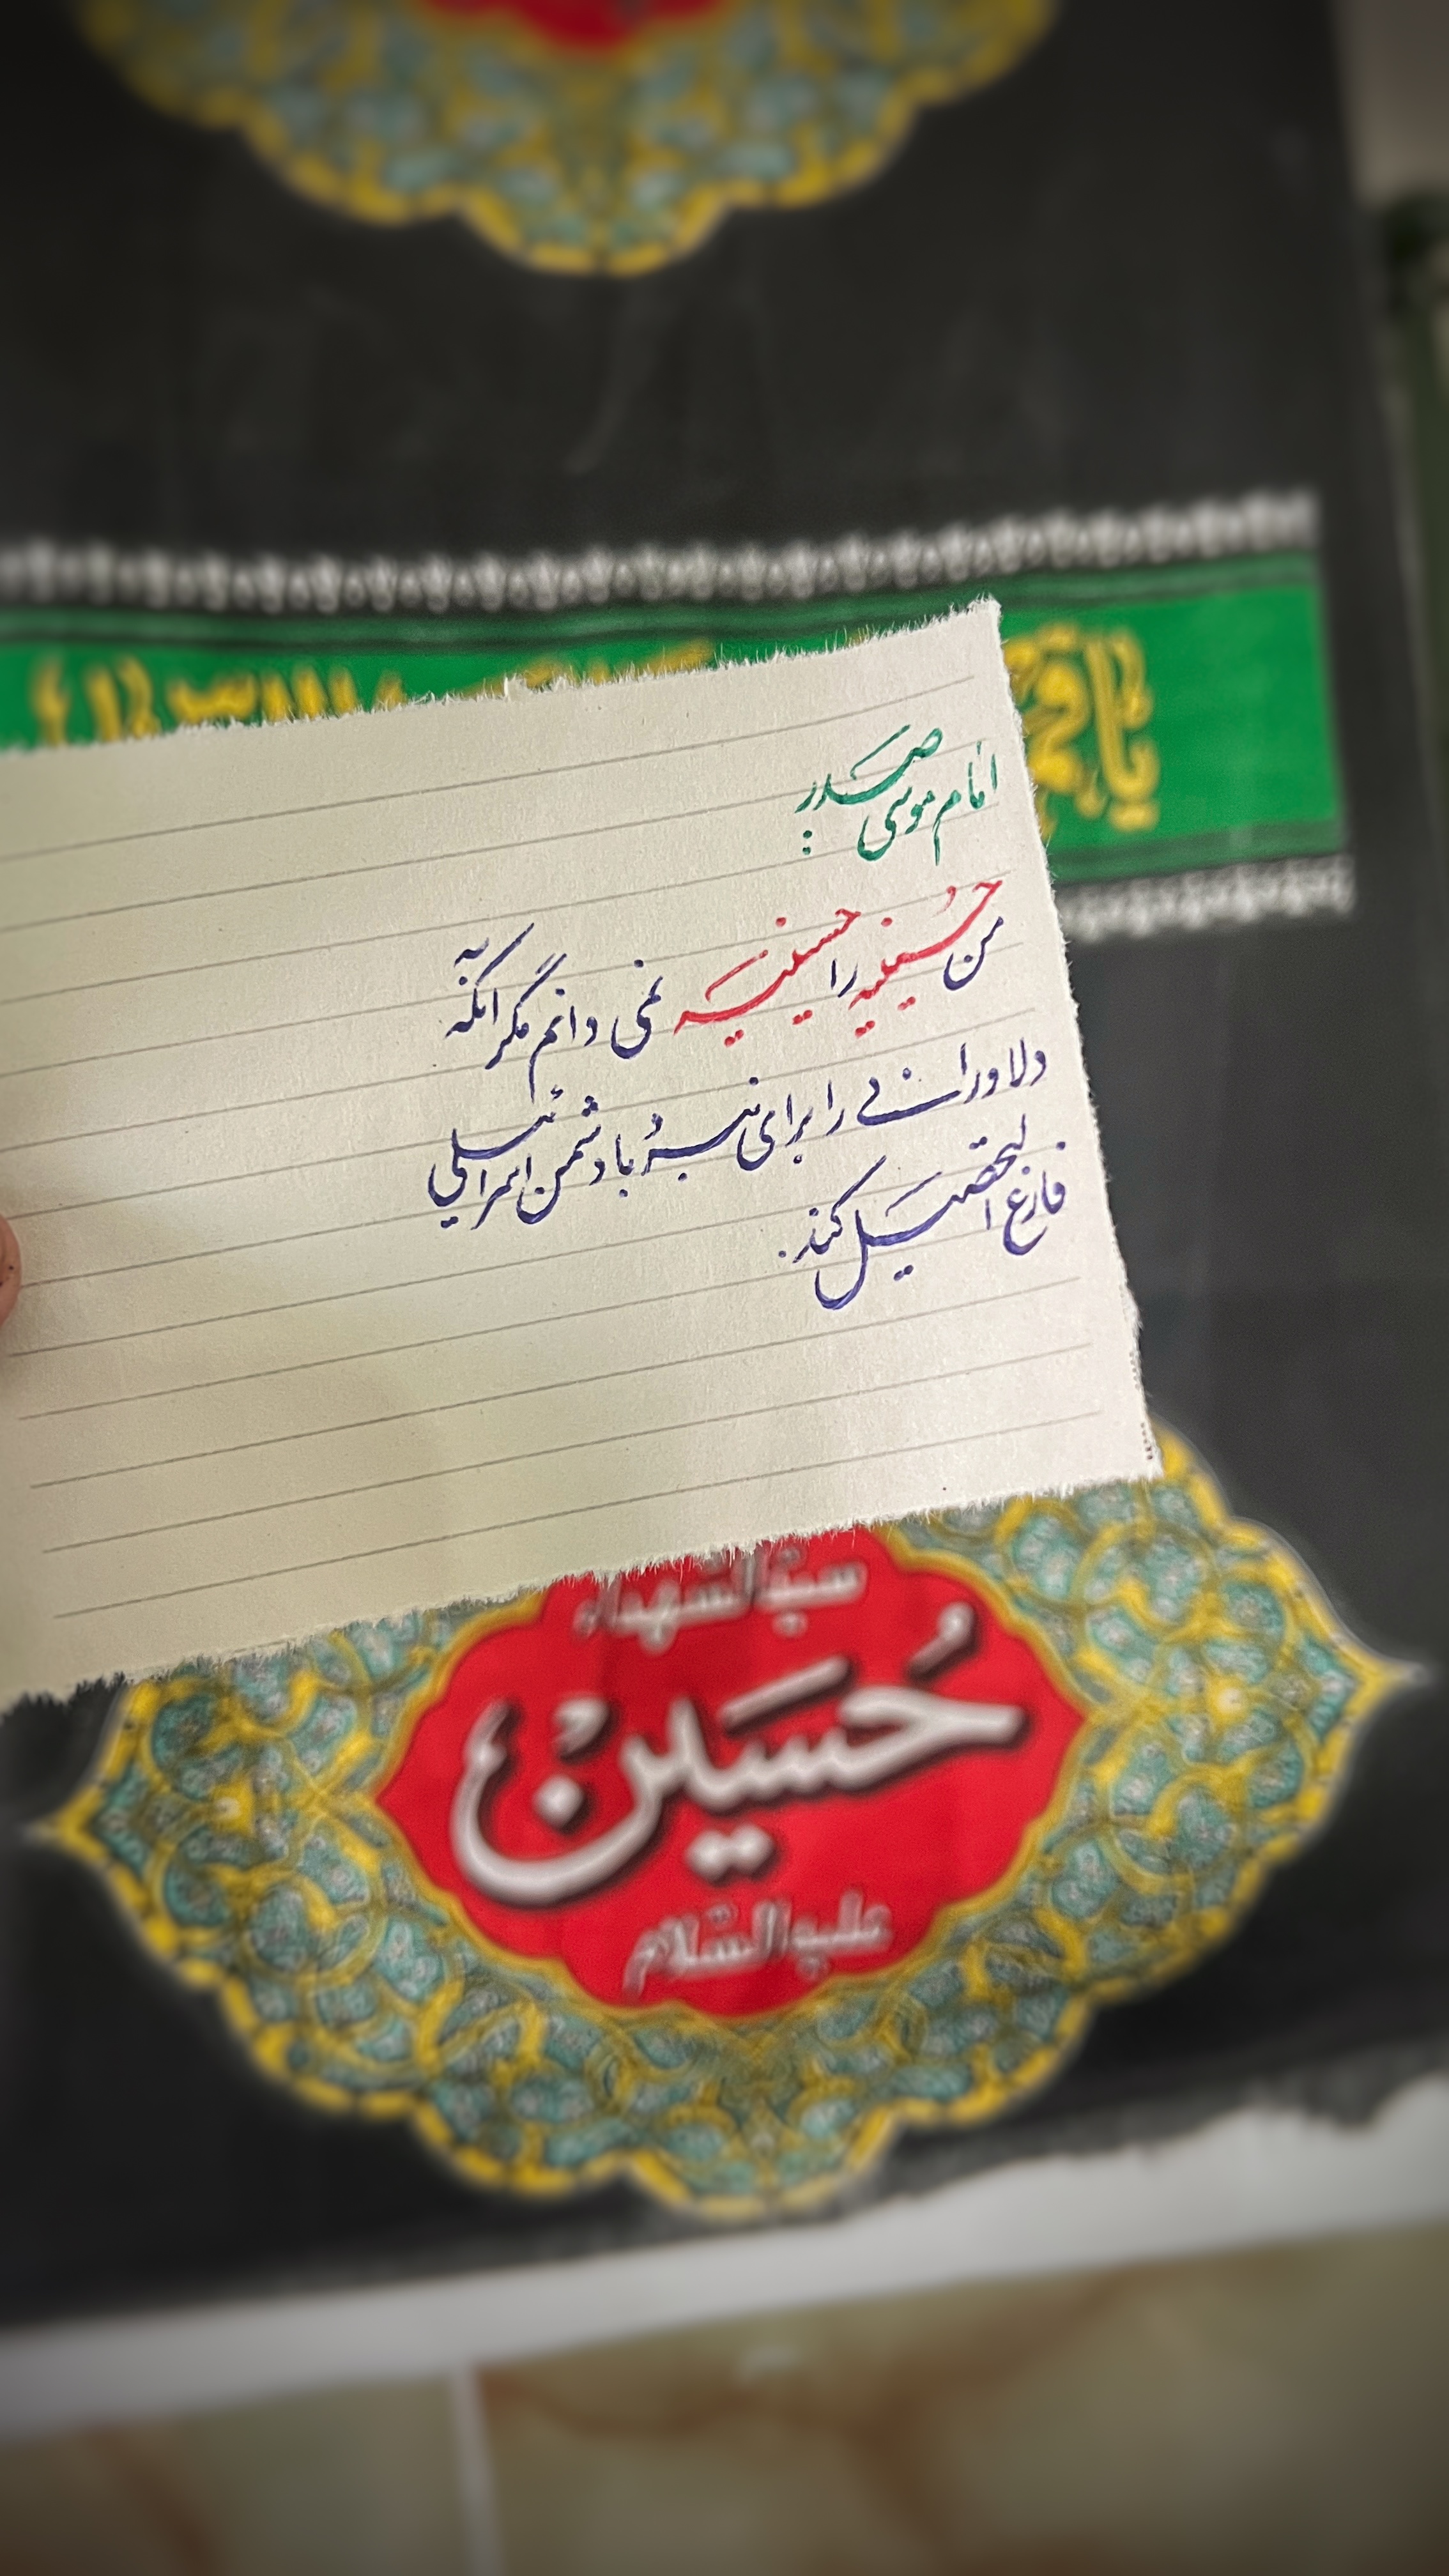 یا قمر
امام موسی صدر:
من حُسینیه را حسینیه نمی دانم مگر آنکه
دلاورانی را برای نبرد با دشمن اسرائیلی
فارغ التحصیل کند.
سیدالشهداء
حُسَین
علیه السلام